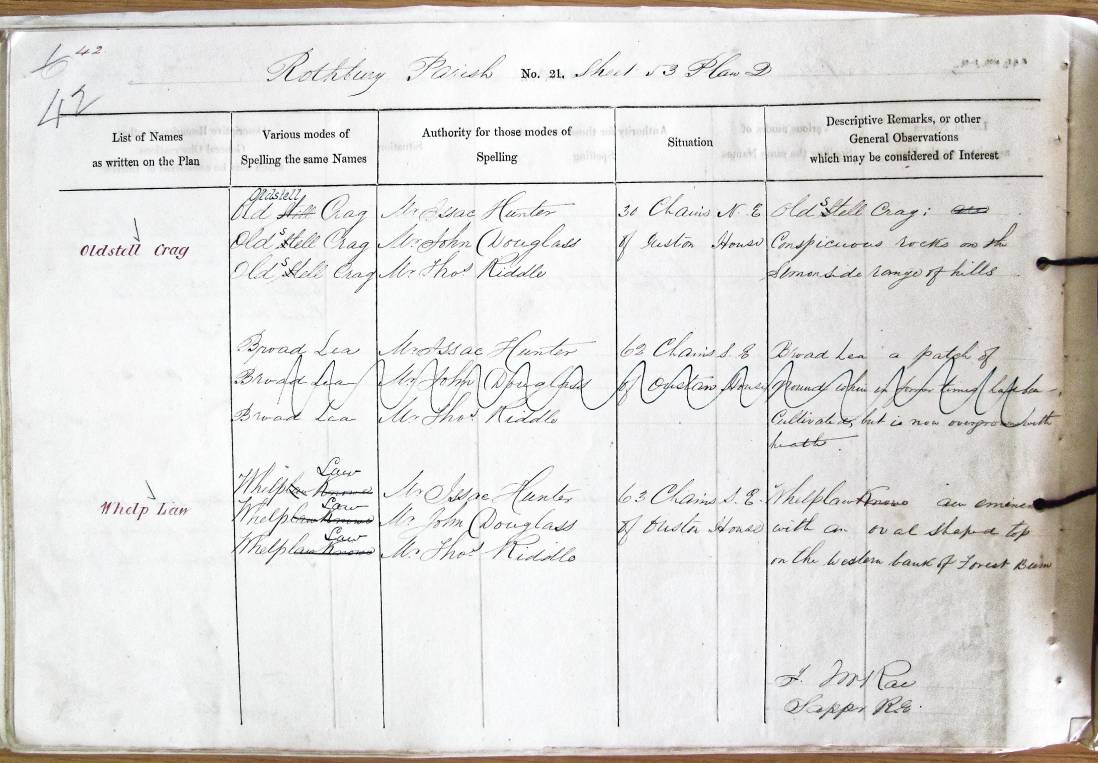 42
42
Rothbury Parish No. 21. Sheet 53 Plan D
List of Names
as written on the Plan
Various modes of
Spelling the same Names
Authority for those modes of
Spelling
Situation
Descriptive Remarks, or other
General Observations
which may be considered of Interest
Oldstell Crag
Oldstell
Old Still Crag
Old Stell Crag
Old Stell Crag
Mr Issac Hunter
Mr John Douglass
Mr Thos Riddle
30 Chains N. E
of Ouston House
Old Stell Crag:
Conspicuous rocks on the
Simonside range of hills
Broad Lea
Broad Lea
Broad Lea
Mr Issac Hunter
Mr John Douglass
Mr Thos Riddle
62 Chains S. E
of Ouston House
Broad Lea a patch of
ground which in former times had been
Cultivated, but is now overgrown with
heath
Whelp Law
Law
Whelplaw Knowe
Law
Whelplaw Knowe
Law
Whelplaw Knowe
Mr Issac Hunter
Mr John Douglass
Mr Thos Riddle
63 Chains S. E
of Ouston House
Whelplaw Knowe an eminence
with an oval shaped top
on the western bank of Forest Burn
J. McRae
Sapper R.E.